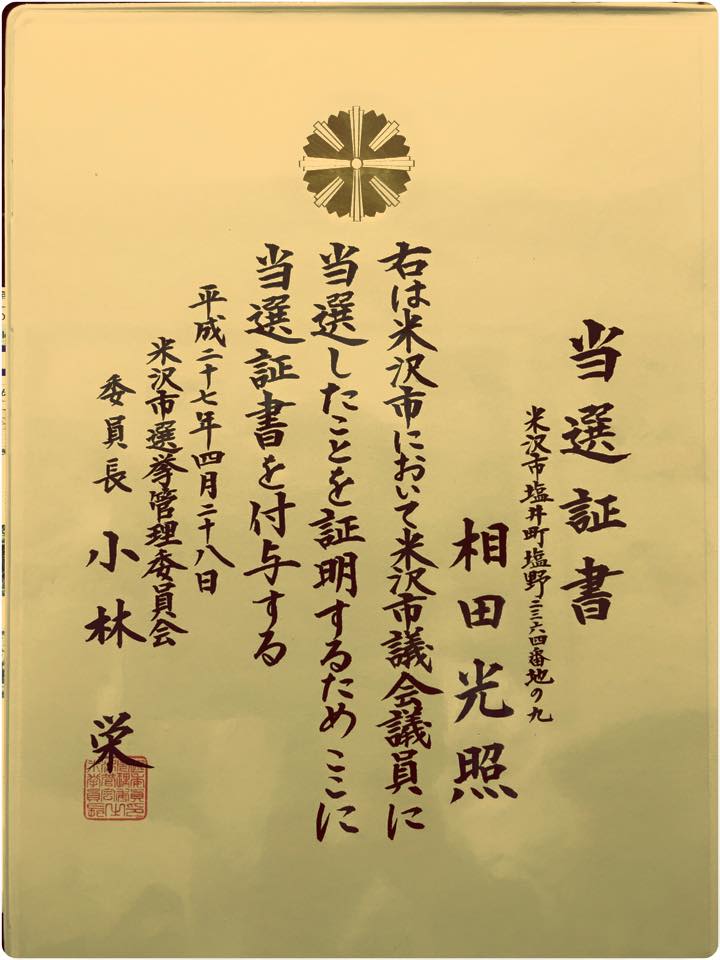 当選証書
米沢市塩井町塩野二三六四番地の九
相田光照
右は米沢市において米沢市議会議員に
当選したことを証明するためここに
当選証書を付与する
平成二十七年四月二十八日
米沢市選挙管理委員会
委員長 小林 栄